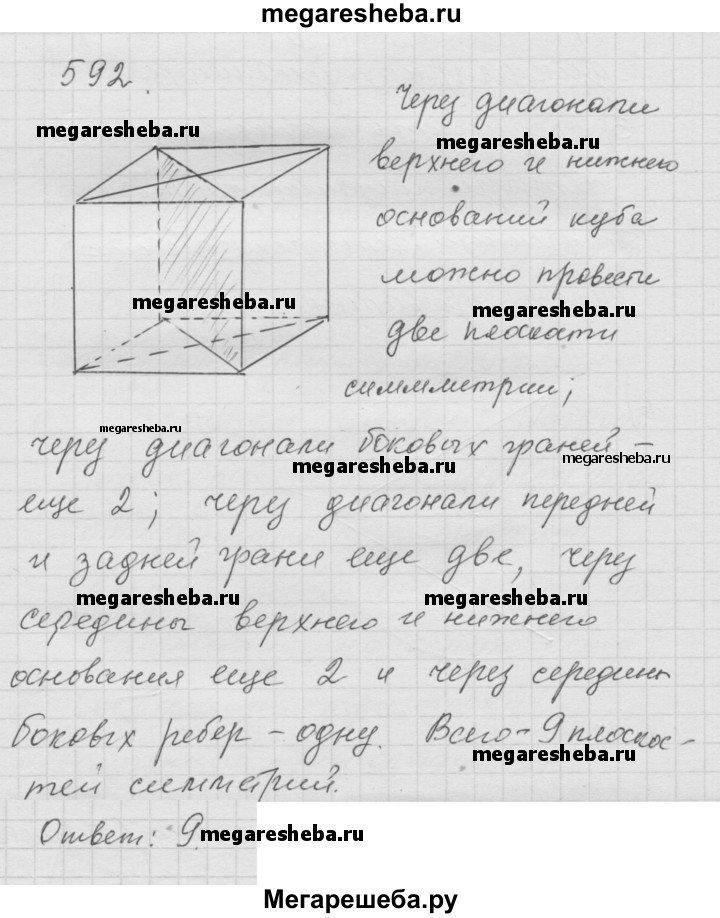 megaresheba.ru
592.
megaresheba.ru
Через диагонали
megaresheba.ru
верхнего и нижнего
оснований куба
можно провести
megaresheba.ru
megaresheba.ru
две плоскости
симметрии;
megaresheba.ru
через диагонали боковых граней –
megaresheba.ru
megaresheba.ru
еще 2; через диагонали передней
и задней грани еще две, через
megaresheba.ru
megaresheba.ru
середины верхнего и нижнего
основания еще 2 и через середины
боковых ребер – одну. Всего – 9 плоскос-
megaresheba.ru
тей симметрий.
Ответ: 9.
megaresheba.ru
Мегарешеба.ру